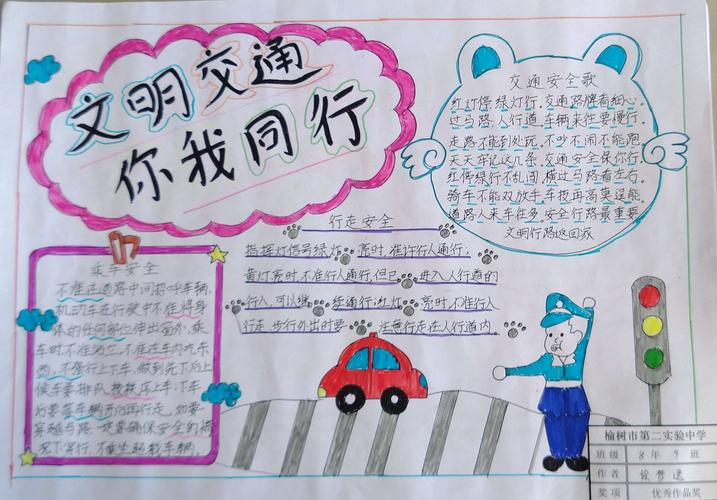 文明交通
你我同行
交通安全歌
红灯停绿灯行.交通路牌看细心.
过马路.人行道.车辆来往要慢行.
走路不能到处玩.不吵不闹不能跑
天天牢记这几条.交通安全保你行.
红停绿行不乱闯.横过马路看左右.
骑车不能双放手.车技再高莫逞能.
道路人来车往多.安全行路最重要
文明行路返回家
行走安全
指挥灯信号绿灯 亮时,准许行人通行;
黄灯亮时不准行人通行,但已 进入人行道的
行人,可以继 续通行;红灯 亮时,不准行人
行走 步行外出时要 注意行走在人行道内.
乘车安全
不准在道路中间招呼车辆,
机动车在行驶中不准将身
体的任何部位伸出窗外,乘
车时不准 不准在车内吃东
西,不 行上下车,做到先下后上
候车要排队,按秩序上车;下车
后要等车辆开 再行走,如要
穿越马路,一定要确保安全的情
况下穿行,
榆树市第二实验中学
班级 8年9班
作者 侯梦
奖项 优秀作品奖